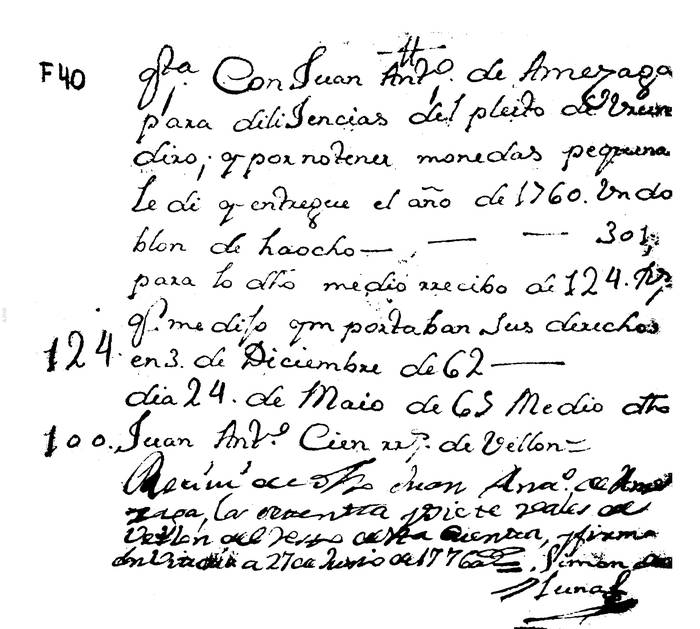 F40
qta Con Juan Antº. de Amezaga
para diliJencias del pleito de Vrun
diro; y por no tener monedas pequena
le di y entregue el año de 1760. Vn do
blon de haocho — , — — 301
para lo dho medio rrecibo de 124. Rs
qe. me diJo ymportaban sus derechos
124. en 3. de Diciembre de 62 —
dia 24. de Maio de 63 Medio dho
100. Juan Antº. Cien rrs. de Vellon =
Reciui de dho Juan Anto. de Ame
zaga, y siete reales de
Vellon del resto desta Cuenta, y firme
en a 27 de Junio de 1776 Simon de
Luna